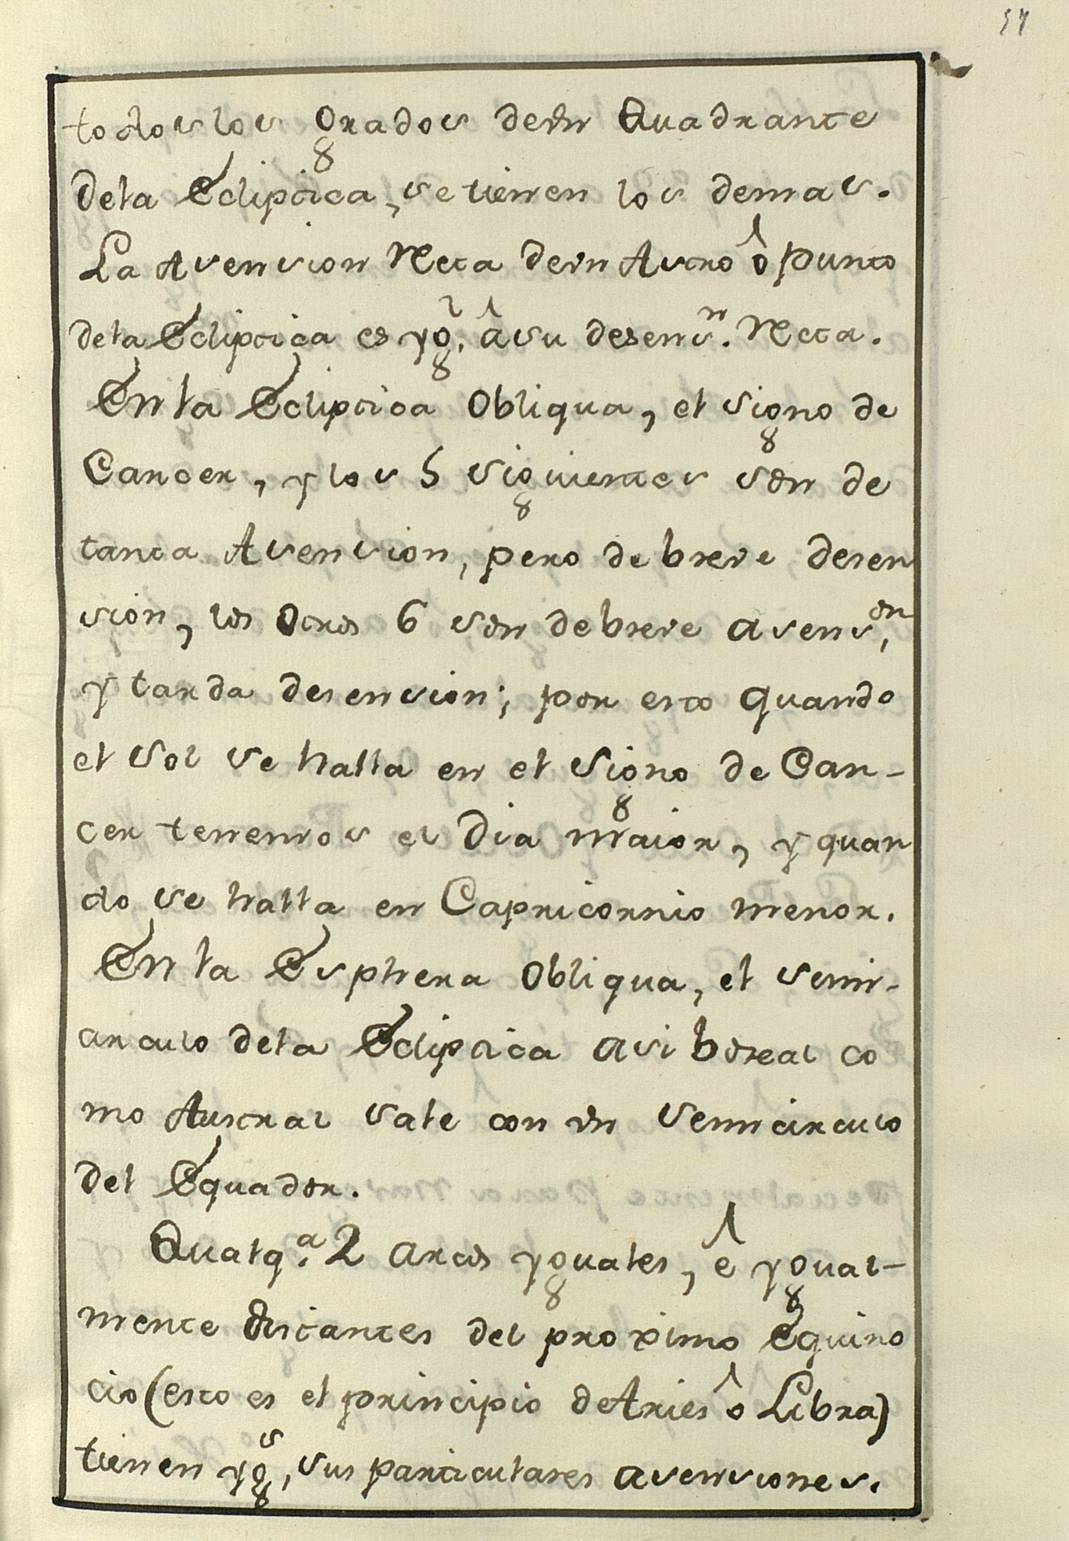 57
todos los grados de vn Quadrante
dela Ecliptica, se tienen los demas.
La Asension Recta de vn Astro ô Punto
dela Ecliptica es yg.l â su desens.n Recta.
En la Ecliptica Obliqua, el signo de
Cancer, y los 5 siguientes son de
tanta Asension, pero de breve desen
sion, los Otros 6 son de breve asens.on,
y tarda desension; por esto quando
el Sol se halla en el Signo de Can-
cer tenemos el Dia maior, y quan
do se halla en Capricornio menor.
En la Esphera Obliqua, el semi-
circulo dela Ecliptica asi boreal co
mo Austral sale con vn semicirculo
del Equador.
Qualq.a 2 arcos yguales, ê ygual-
mente distantes del proximo Equino
cio (esto es el principio de Aries ô Libra)
tienen yg.s, sus particulares asensiones.